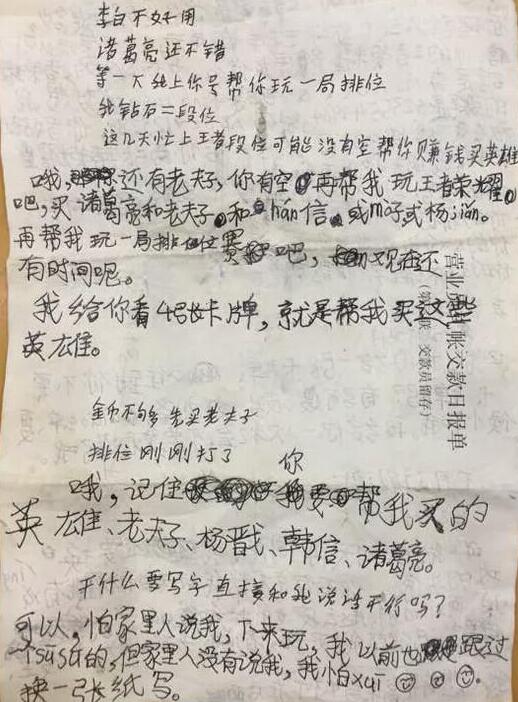 李白不好用
诸葛亮还不错
等一大我上你号帮你玩一局排位
我钻石二段位
这几天忙上王者段位可能没有空帮你赚钱买英雄
哦,还有老夫子,你有空再帮我玩王者荣耀
吧,买诸葛亮和老夫子和hán信。或m子或杨jiǎn。
再帮我玩一局排位赛吧,现在还
有时间呢。
我给你看4张卡牌,就是帮我买这些
英雄。
营业 出账交款日报单
交款员留存)
金币不够多先买老夫子
排位刚刚打了
哦,记住你帮我买的
英雄、老夫子、杨戬、韩信、诸葛亮。
干什么要写字直接和我说话不行吗?
可以,怕家里人说我,下来玩,我以前也跟过
sūsū的,但家里人没有说我,我怕xuī
换一张纸写。